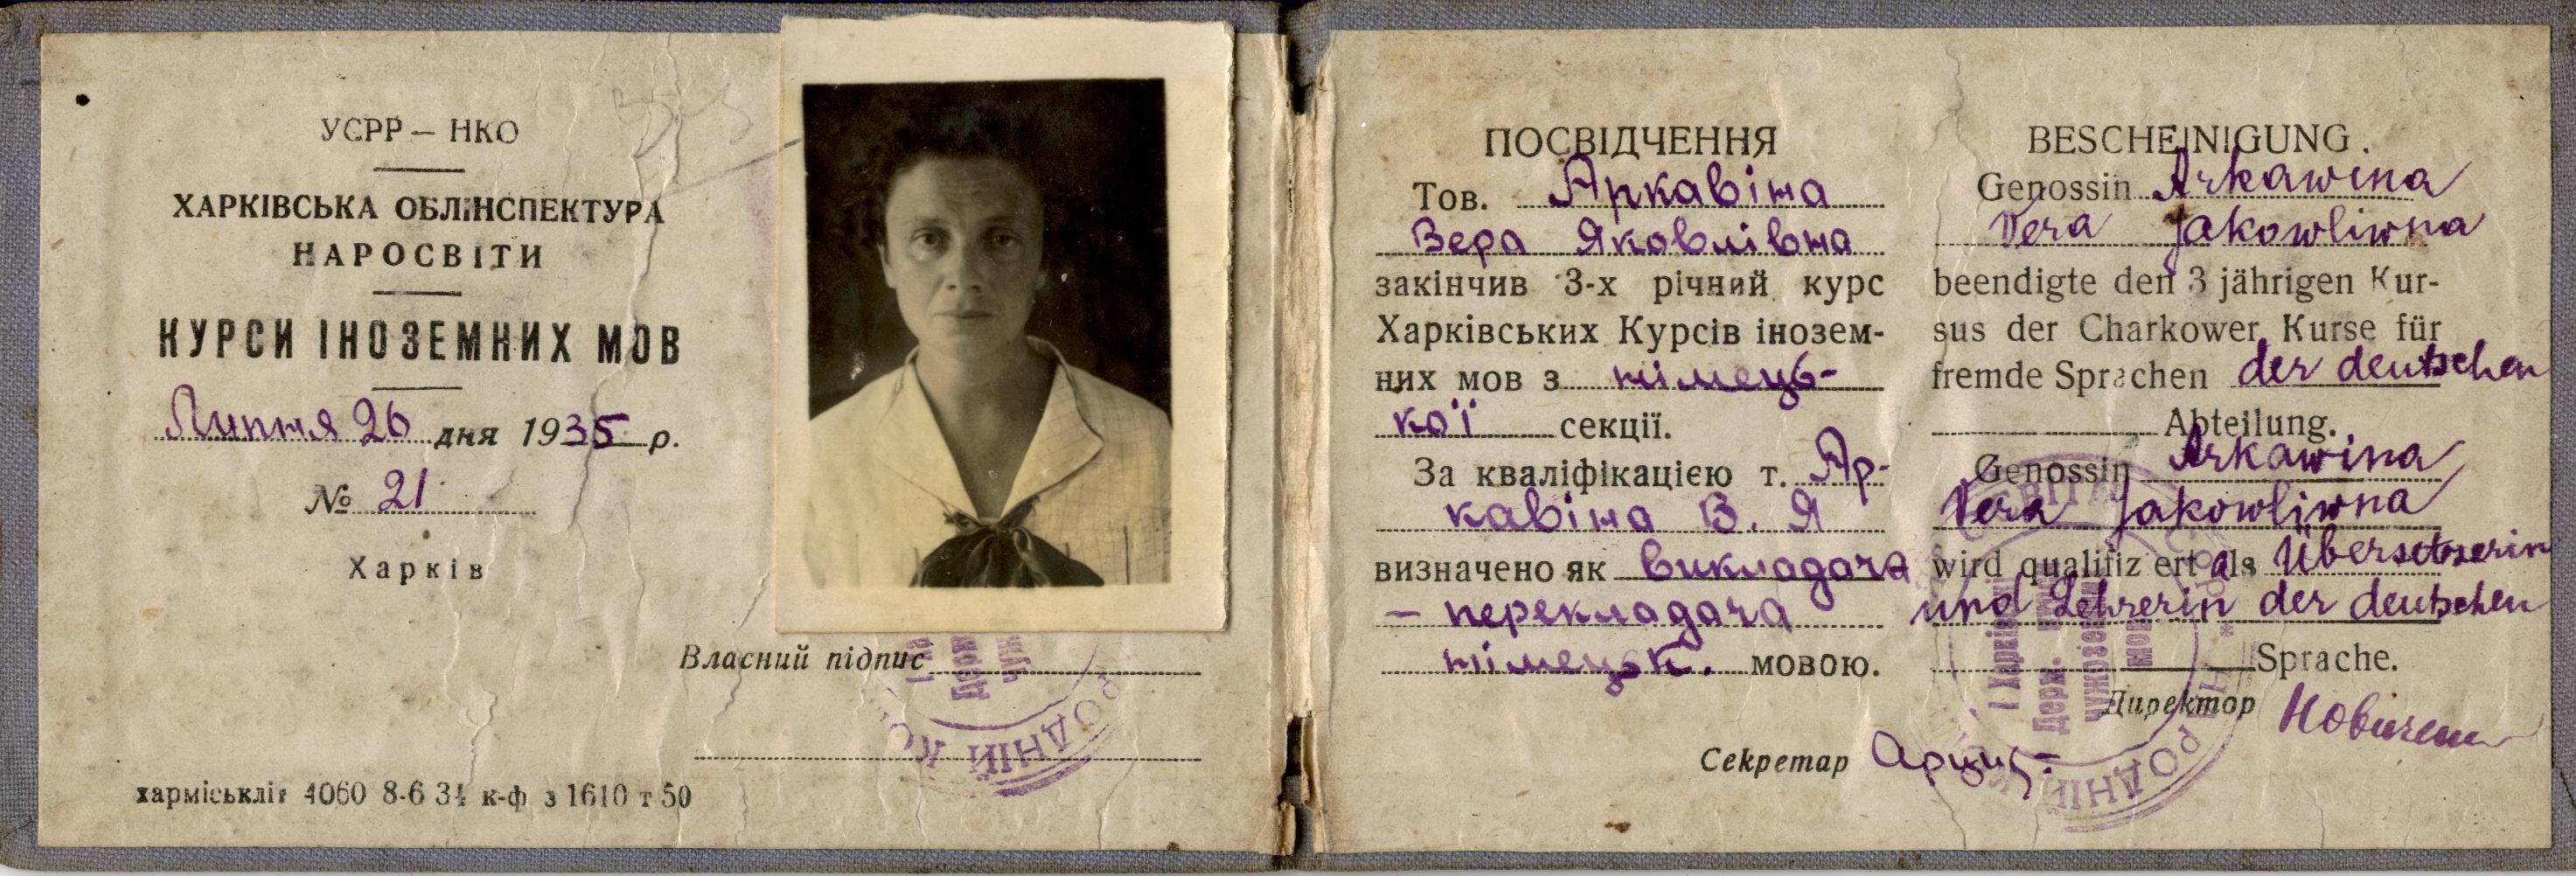 УСРР — НКО
ХАРКІВСЬКА ОБЛІНСПЕКТУРА
НАРОСВІТИ
КУРСИ ІНОЗЕМНИХ МОВ
Липня 26 дня 1935 р.
№ 21
Харків
Власний підпис
харміськліт 4060 8-6 34 к-ф з 1610 т 50
ПОСВІДЧЕННЯ
Тов. Аркавіна
Вера Яковлівна
закінчив 3-х річний курс
Харківських Курсів інозем-
них мов з німець-
кої секції.
За кваліфікацією т. Ар-
кавіна В. Я
визначено як викладача
— перекладача
німецьк. мовою.
Секретар
BESCHEINIGUNG.
Genossin Arkawina
Vera Jakowliwna
beendigte den 3 jährigen Kur-
sus der Charkower Kurse für
fremde Sprachen der deutschen
Abteilung.
Genossin Arkawina
Vera Jakowliwna
wird qualifiziert als Übersetzerin
und Lehrerin der deutschen
Sprache.
Директор
І Харківські
Держ.
чужозем
мов